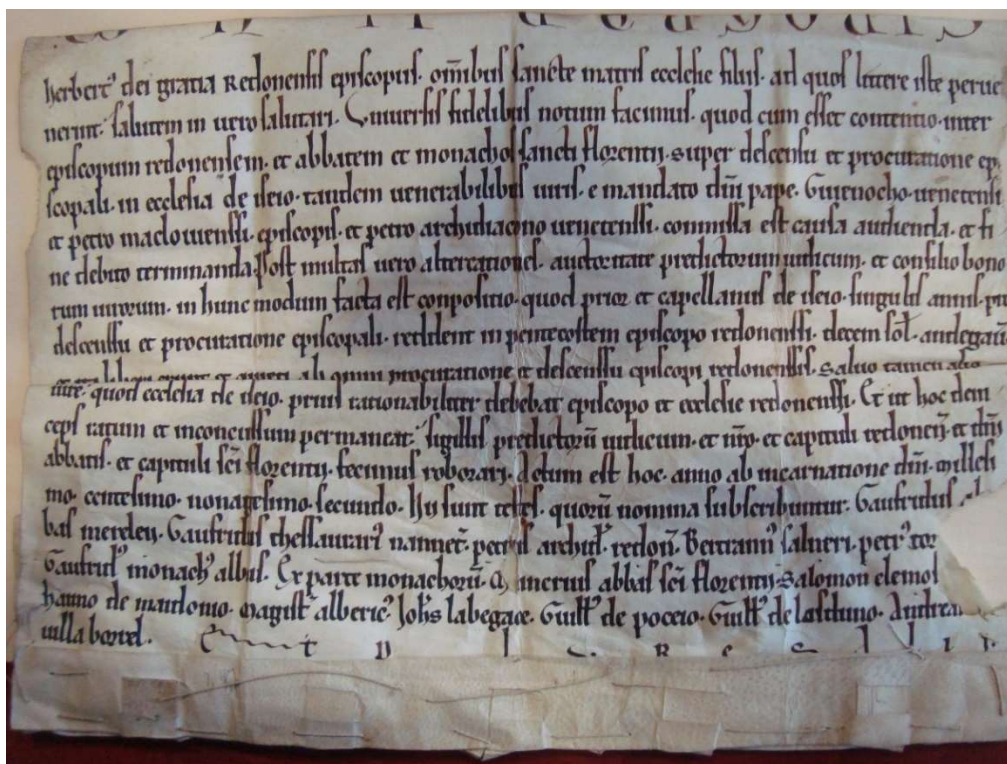 CIROGRAPHUM
herbert' dei gratia Redonensis episcopus. omnibus sancte matris ecclesie filiis. ad quos littere iste perue
nerint. salutem in uero salutari. Vniuersis fidelibus notum facimus. quod cum esset contentio. inter
episcopum redonensem. et abbatem et monachos sancti florentij. super descensu et procuratione epi
scopali. in ecclesia de iseio. tandem uenerabilibus uiris. e mandato dni pape. Guienocho. uenetensi
et petro maclouiensi. episcopis. et petro archidiacono uenetensi. commissa est causa audienda. et fi
ne debito terminanda. Post multas uero altercationes. auctoritate predictorum iudicum. et consilio bono
rum uirorum. in hunc modum facta est conpositio. quod prior et capellanus de iseio. singulis annis. pro
descensu et procuratione episcopali. reddent in pentecosten episcopo redonensi. decem sol. andegau
et quieti ab omni procuratione et descensu episcopi redonensis. saluo tamen alio
iure. quod ecclesia de iseio. prius rationabiliter debebat episcopo et ecclesie redonensi. Et ut hoc dein
ceps ratum et inconcussum permaneat. sigillis predictorū iudicum. et nro. et capituli redonen. et dni
abbatis. et capituli sci florentij. fecimus roborari. Actum est hoc. anno ab incarnatione dni. millesi
mo. centesimo. nonagesimo. secundo. Hij sunt testes. quorū nomina subscribuntur. Gaufridus ab
bas meredij. Gaufridus thesaurari' nannet. petrus archid. redon. Bertrann' salueri. petr' tor
Gaufrid' monach' albus. Ex parte monachorū. Mainerius abbas sci florentij. Salomon elemos
hamo de maidonio. magist' alberic'. Johs labegace. Guill' de poceio. Guill' de lasduno. Andrea
uilla bortel.